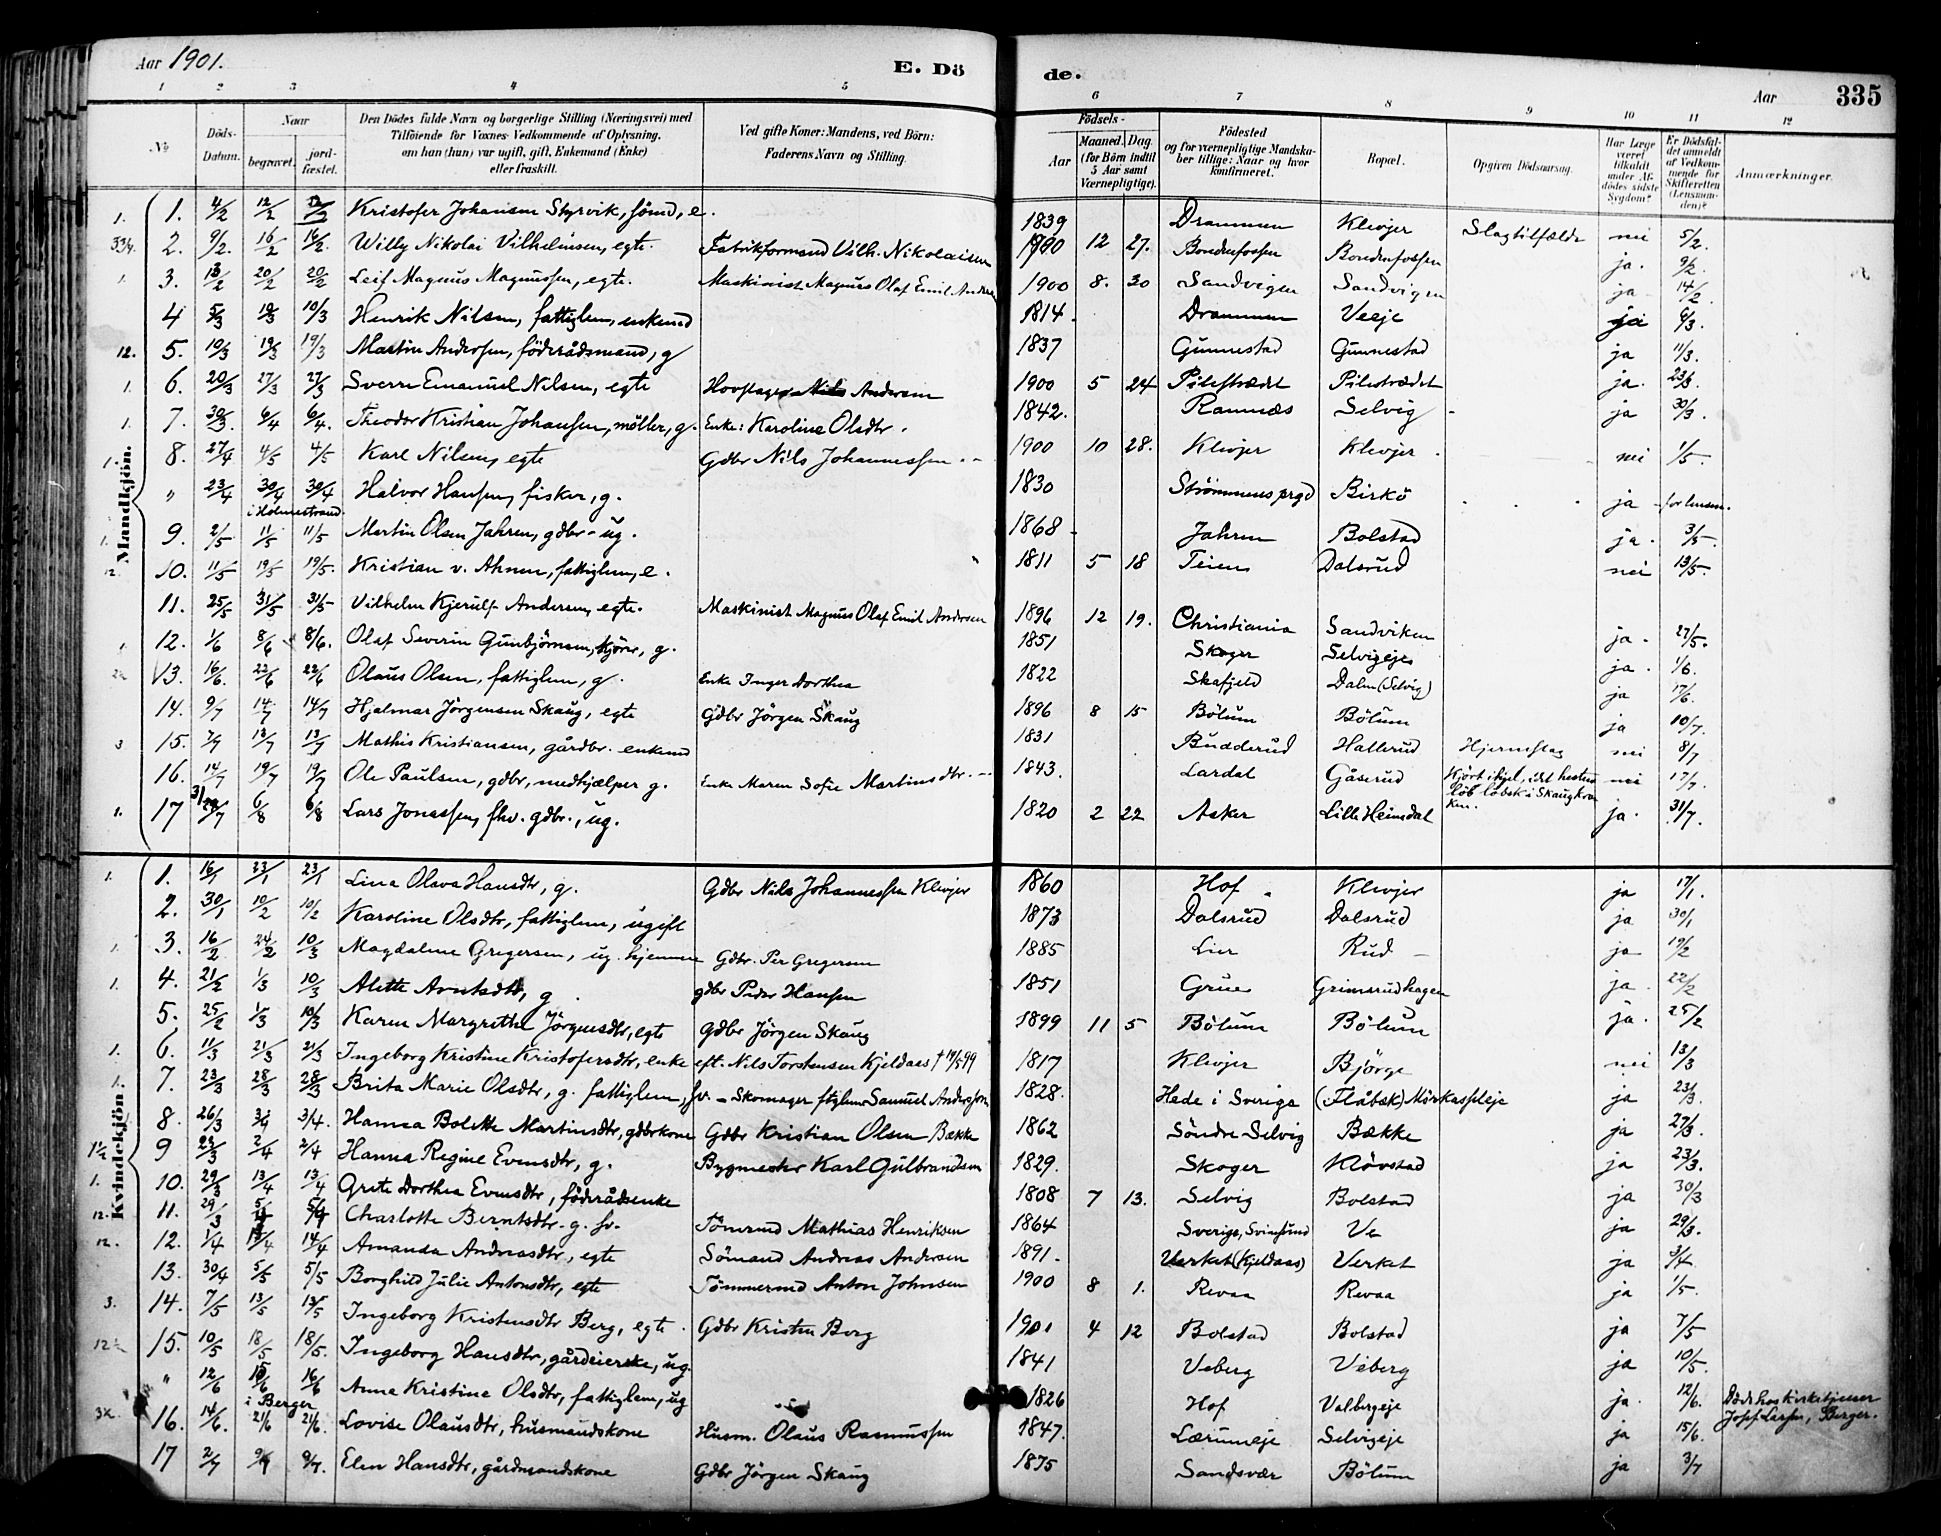 Aar 1901. E. Dö
de. Aar 335
1 2 3 4 5
6 7 8 9 10 11 12
No
Döds-Datum.
Naar
begravet. jord-fæstet.
Den Dödes fulde Navn og borgerlige Stilling (Næringsvei) med
Tilföiende for Voxnes Vedkommende af Oplysning,
om han (hun) var ugift, gift, Enkemand (Enke)
eller fraskilt.
Ved gifte Koner: Mandens, ved Börn:
Faderens Navn og Stilling.
Födsels-
Aar Maaned. Dag.
(for Börn indtil
5 Aar samt
Værnepligtige).
Födested
og for værnepligtige Mandska-
ber tillige: Naar og hvor
konfirmeret.
Bopæl.
Opgiven Dödsaarsag.
Har Læge
været
tilkaldt
under Af-
dödes sidste
Sygdom?
Er Dödsfal-
det anmeldt
af Vedkom-
mende for
Skifteretten
(Lensman-
den)?
Anmærkninger.
Mandkjön.
1. 1. 4/2 12/2 12/2 Kristofer Johansen Styrvik, sömd, e. 1839 Drammen Klevjer Slagtilfælde nei 5/2.
334. 2. 9/2. 16/2 16/2. Willy Nikolai Vilhelmsen, egte. Fabrikformand Vilh. Nikolaisen 1900 12 27. Bondenfossen Bondenfossen ja. 9/2.
1. 3. 13/2 20/2 20/2 Leif Magnus Magnussen, egte. Maskinist Magnus Olaf Emil Andre 1900 8. 30 Sandvigen Sandvigen ja 14/2.
4 5/3 10/3 10/3 Henrik Nilsen, fattiglem, enkemd 1814. Drammen Veeje ja 6/3.
12. 5. 10/3 19/3 19/3 Martin Andersen, föderådsmand, g 1837 Gunnestad Gunnestad ja 11/3.
1. 6. 20/3 27/3 27/3 Sverre Emanuel Nilsen, egte Hovslager Nils Andersen 1900 5 24 Pilestrædet Pilestrædet ja. 23/3.
1. 7. 30/3. 6/4 6/4. Theodor Kristian Johansen, möller, g. Enke: Karoline Olsdtr. 1842. Ramnæs Selvig ja 30/3.
1. 8. 27/4 4/5 4/5 Karl Nilsen, egte Gdbr Nils Johannessen 1900 10 28. Klevjer Klevjer nei 1/5.
" 23/4 30/4 30/4 Halvor Hansen, fisker, g. 1830 Strömmens prgd Birkö ja
i Holmestrand
1. 9. 2/5 11/5 11/5 Martin Olsen Jahren, gdbr - ug. 1868 Jahren Bolstad ja. 3/5.
12. 10. 11/5 19/5 19/5. Kristian v. Ahnen, fattiglem, e. 1811 5 18 Teien Dalsrud nei 13/5.
11. 25/5 31/5 31/5 Vilhelm Kjerulf Andersen, egte. Maskinist Magnus Olaf Emil Andersen 1896 12 19. Christiania Sandviken ja. 27/5.
1. 12. 1/6 8/6 8/6. Olaf Severin Gunbjörnsen, g. 1851 Skoger Selvigeje ja. 1/6.
13. 16/6. 22/6 22/6 Olaus Olsen, fattiglem, g. Enke Inger Dorthea 1822 Skafjeld Dalen (Selvig) ja 17/6.
14. 9/7 14/7 14/7 Hjalmar Jörgensen Skaug, egte Gdbr Jörgen Skaug 1896 8 15 Bölum Bölum ja 10/7.
3 15. 7/7 13/7 13/7 Mathis Kristiansen, gårdbr. enkemd 1831 Budderud Hallerud Hjerneslag nei 8/7
16. 14/7 19/7 19/7 Ole Paulsen, gdbr, medhjælper g. Enke Maren Sofie Martinsdtr. 1843. Lardal Gåserud Kjört ihjel, idet hesten nei 17/7.
löb löbsk i Skaugkro
ken.
1. 17 31/7 6/8 6/8 Lars Jonassen, fhv. gdbr., ug. 1820 2 22 Asker Lille Heimdal ja. 31/7.
Kvindekjön
1. 1. 16/1 23/1 23/1 Lina Olava Hansdtr, g. Gdbr Nils Johannessen Klevjer 1860 Hof Klevjer ja 17/1.
2. 30/1 10/2 10/2 Karoline Olsdtr, fattiglem, ugift 1873 Dalsrud Dalsrud ja 30/1
1. 3. 16/2 24/2 10/3 Magdalene Gregersen, ug. hjemme Gdbr. Per Gregersen 1885 Lier Rud ja 19/2
1. 4. 21/2 1/3 10/3 Alette Arntsdtr, g gdbr Peder Hansen 1851 Grue Grimsrudhagen ja. 22/2
5. 25/2 1/3 10/3 Karen Margrethe Jörgensdtr, egte Gdbr Jörgen Skaug 1899 11 5 Bölum Bölum ja. 25/2
1. 6. 11/3 21/3 21/3 Ingeborg Kristine Kristofersdtr, enke eft. Nils Torstensen Kjeldaas 1817 Klevjer Björge nei 13/3
1. 7. 23/3 28/3 28/3 Brita Marie Olsdtr, g. fattiglem, sv. - Skomager ftglem Samuel Anderson 1828. Hede i Sverige (Flåbæk) Mörkasseleje ja 23/3.
8. 26/3 3/4 3/4. Hanna Bolette Martinsdtr, gdbrkone Gdbr Kristian Olsen Bække 1862 Söndre Selvig Bække ja 27/3.
1½ 9 23/3 2/4 2/4 Hanna Regine Evensdtr, g. Bygmester Karl Gulbrandsen 1829. Skoger Klövstad ja 23/3.
1. 10. 29/3 13/4 13/4 Grete Dorthea Evensdtr, föderådsenke 1808 7 13. Selvig Bolstad ja 30/3
12. 11. 29/3 5/4 5/4 Charlotte Berntsdtr. g. sv. Tömrmd Mathias Henriksen 1864 Sverige, Svinesund Ve ja 29/3.
12. 12. 1/4 14/4 14/4 Amanda Andreasdtr, egte Sömand Andreas Andersen 1891. Verket (Kjeldaas) Verket ja 3/4.
13. 30/4 5/5 5/5 Borghild Julie Antonsdtr, egte Tömmermd Anton Johnsen 1900 8 1. Revaa Revaa ja 1/5.
3. 14. 7/5 13/5 13/5 Ingeborg Kristensdtr Berg, egte. Gdbr Kristen Berg 1901 4 12 Bolstad Bolstad ja 7/5
15. 10/5 18/5 18/5. Ingeborg Hansdtr, gårdeierske, ug. 1841 Veberg Veberg ja 10/5.
" 12/6 16/6 Anne Kristine Olsdtr, fattiglem, ug 1826 Hof Valbergeje ja. 12/6. Död hos Kirketjener
i Berger Josef Larsen, Berger.
16. 14/6. 21/6 21/6. Lovise Olausdtr, husmandskone Husm. Olaus Rasmussen 1847. Lærumeje Selvigeje ja 15/6.
17 2/7 9/7 9/7. Elen Hansdtr, gårdmandskone Gdbr Jörgen Skaug 1875 Sandsvær Bölum ja 3/7